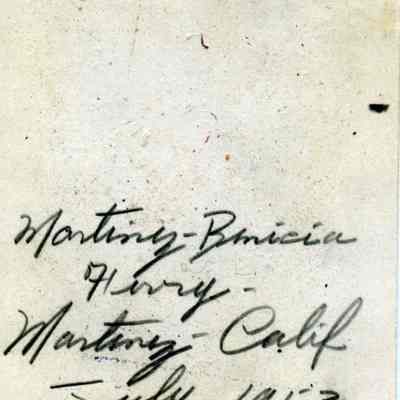 Martinez-Benicia
Ferry-
Martinez-Calif
July 1953